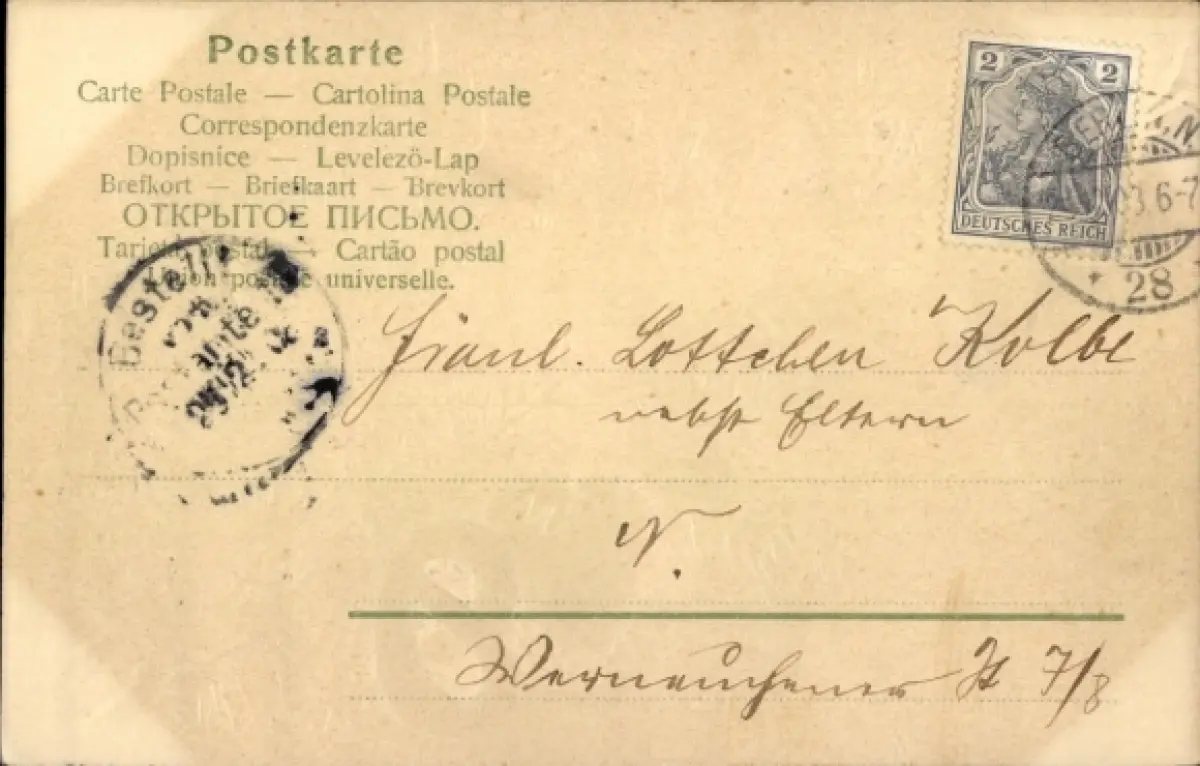 Postkarte
Carte Postale — Cartolina Postale
Correspondenzkarte
Dopisnice — Levelezö-Lap
Brefkort — Briefkaart — Brevkort
ОТКРЫТОЕ ПИСЬМО.
Tarjeta postal — Cartão postal
Union postale universelle.
2 2
DEUTSCHES REICH
6-7
* 28
Bestellt
vom
Postamte
Fräul. Lottchen Kolbe
nebst Eltern
N.
Werneuchener St 7/8